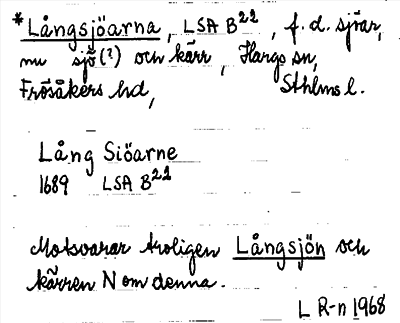 *Långsjöarna, LSA B22, f.d. sjöar,
nu sjö(?) och kärr, Hargs sn,
Frösåkers hd, Sthlms l.
Lång Siöarne
1689 LSA B22
Motsvarar troligen Långsjön och
kärren N om denna.
L R-n 1968